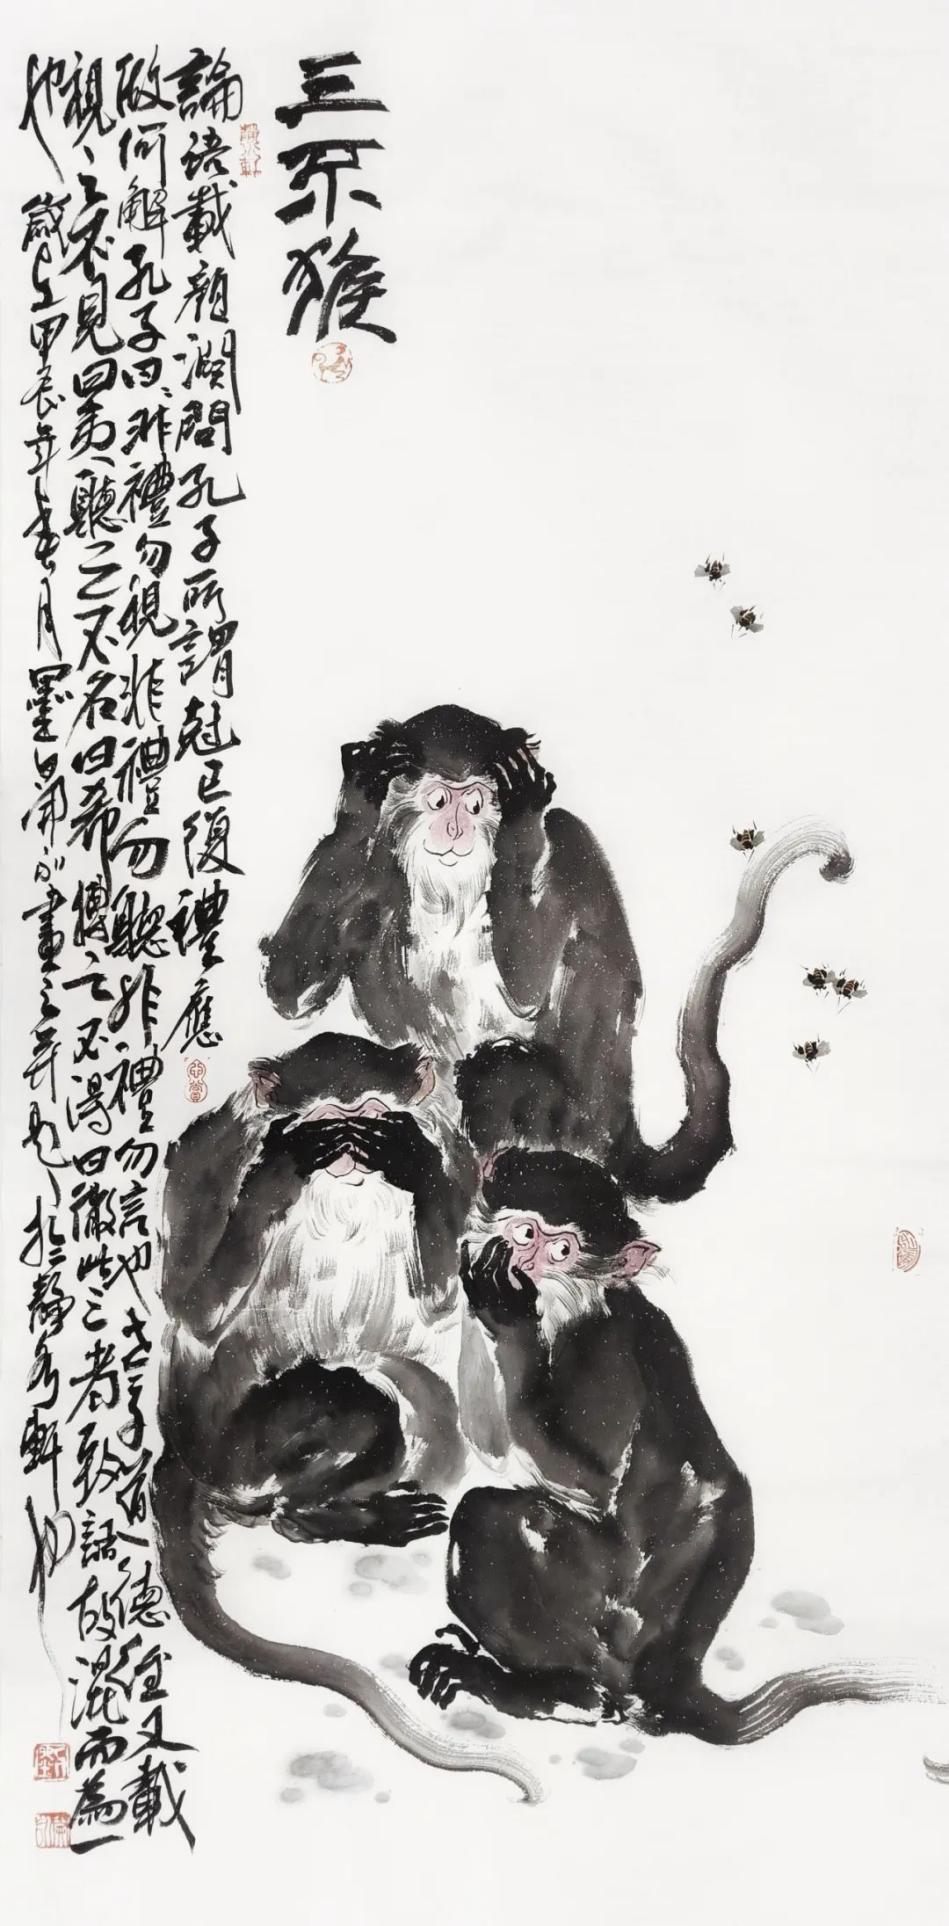 三不猴
論語載顏淵問孔子所謂尅己復禮應
做何解孔子曰非禮勿視非禮勿聽非禮勿言也老子道德經又載
視之不見曰夷聽之不名曰希搏之不得曰微此三者致詰故混而為一
也歲在甲辰年春月墨畫之并題於靜軒